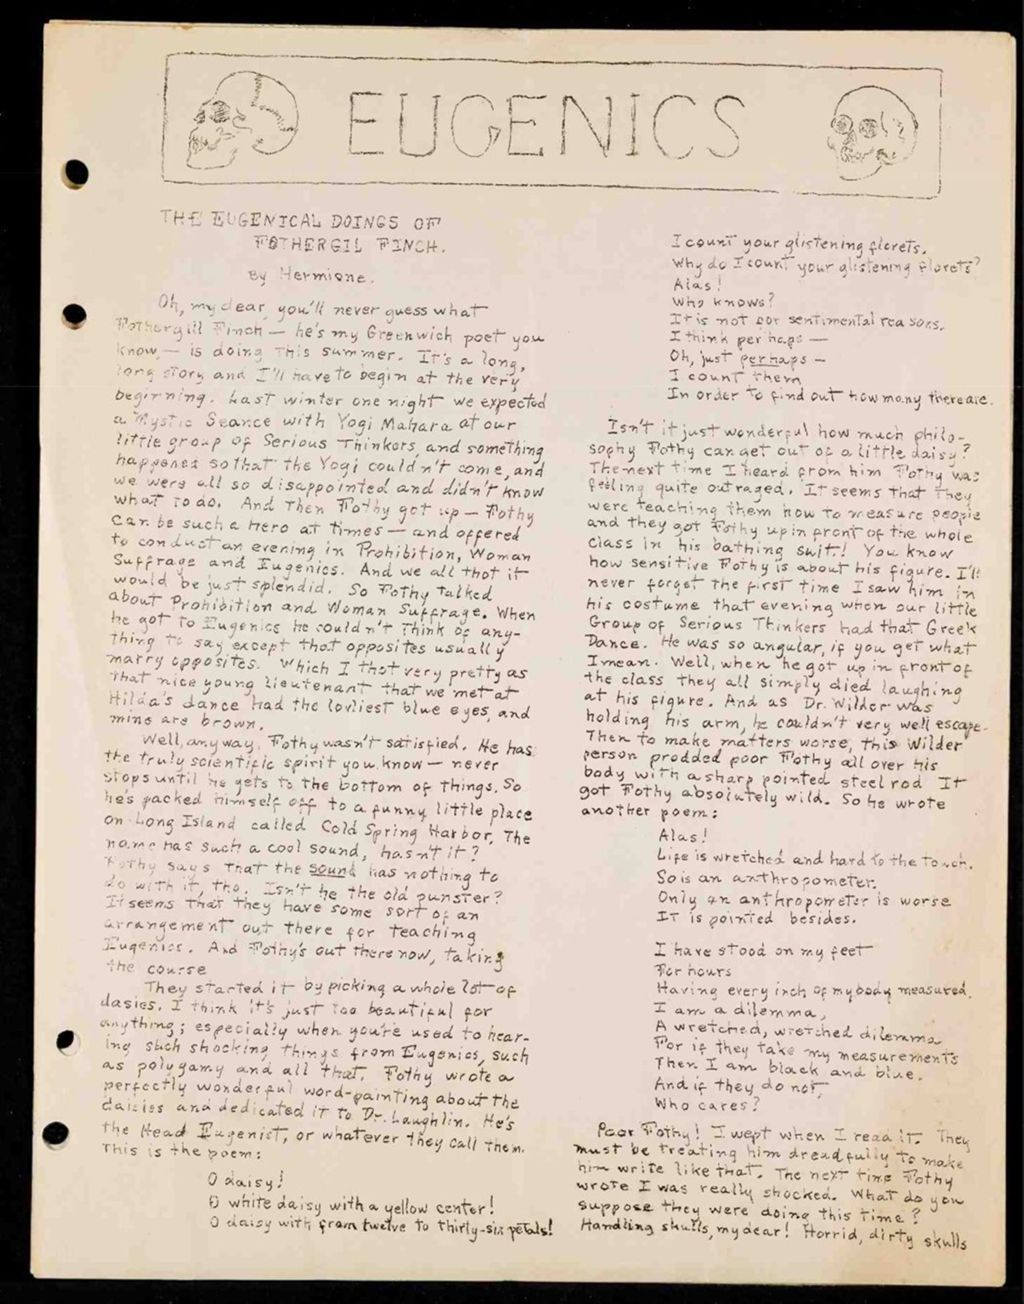 EUGENICS
THE EUGENICAL DOINGS OF
FOTHERGIL FINCH.
By Hermione.
Oh, my dear, you'll never guess what
Fothergill Finch — he's my Greenwich poet you
know, — is doing this summer. It's a long,
long story and I'll have to begin at the very
beginning. Last winter one night we expected
a Mystic Seance with Yogi Mahara at our
little group of Serious Thinkers, and something
happened so that the Yogi couldn't come, and
we were all so disappointed and didn't know
what to do. And Then Fothy got up — Fothy
can be such a hero at times — and offered
to conduct an evening in Prohibition, Woman
Suffrage and Eugenics. And we all thot it
would be just splendid. So Fothy talked
about Prohibition and Woman Suffrage. When
he got to Eugenics he couldn't think of any-
thing to say except that opposites usually
marry opposites. Which I thot very pretty as
that nice young lieutenant that we met at
Hilda's dance had the lovliest blue eyes, and
mine are brown.
Well, anyway, Fothy wasn't satisfied. He has
the truly scientific spirit you know — never
stops until he gets to the bottom of things. So
he's packed himself off to a funny little place
on Long Island called Cold Spring Harbor. The
name has such a cool sound, hasn't it?
Fothy says that the sound has nothing to
do with it, tho. Isn't he the old punster?
It seems that they have some sort of an
arrangement out there for teaching
Eugenics. And Fothy's out there now, taking
the course
They started it by picking a whole lot of
dasies. I think it's just too beautiful for
anything; especially when you're used to hear-
ing such shocking things from Eugenics, such
as polygamy and all that. Fothy wrote a
perfectly wonderful word-painting about the
daisies and dedicated it to Dr. Laughlin. He's
the Head Eugenist, or whatever they call them.
This is the poem:
O daisy!
O white daisy with a yellow center!
O daisy with from twelve to thirty-six petals!
I count your glistening florets.
Why do I count your glistening florets?
Alas!
Who knows?
It is not for sentimental reasons.
I think perhaps —
Oh, just perhaps —
I count them
In order to find out how many there are.
Isn't it just wonderful how much philo-
sophy Fothy can get out of a little daisy?
The next time I heard from him Fothy was
feeling quite outraged. It seems that they
were teaching them how to measure people
and they got Fothy up in front of the whole
class in his bathing suit! You know
how sensitive Fothy is about his figure. I'll
never forget the first time I saw him in
his costume that evening when our little
Group of Serious Thinkers had that Greek
Dance. He was so angular, if you get what
I mean. Well, when he got up in front of
the class they all simply died laughing
at his figure. And as Dr. Wilder was
holding his arm, he couldn't very well escape.
Then to make matters worse, this Wilder
person prodded poor Fothy all over his
body with a sharp pointed steel rod It
got Fothy absolutely wild. So he wrote
another poem:
Alas!
Life is wretched and hard to the touch.
So is an anthropometer.
Only an anthropometer is worse
It is pointed besides.
I have stood on my feet
For hours
Having every inch of my body measured.
I am a dilemma,
A wretched, wretched dilemma
For if they take my measurements
Then I am black and blue.
And if they do not,
Who cares?
Poor Fothy! I wept when I read it. They
must be treating him dreadfully to make
him write like that. The next time Fothy
wrote I was really shocked. What do you
suppose they were doing this time?
Handling skulls, my dear! Horrid, dirty skulls